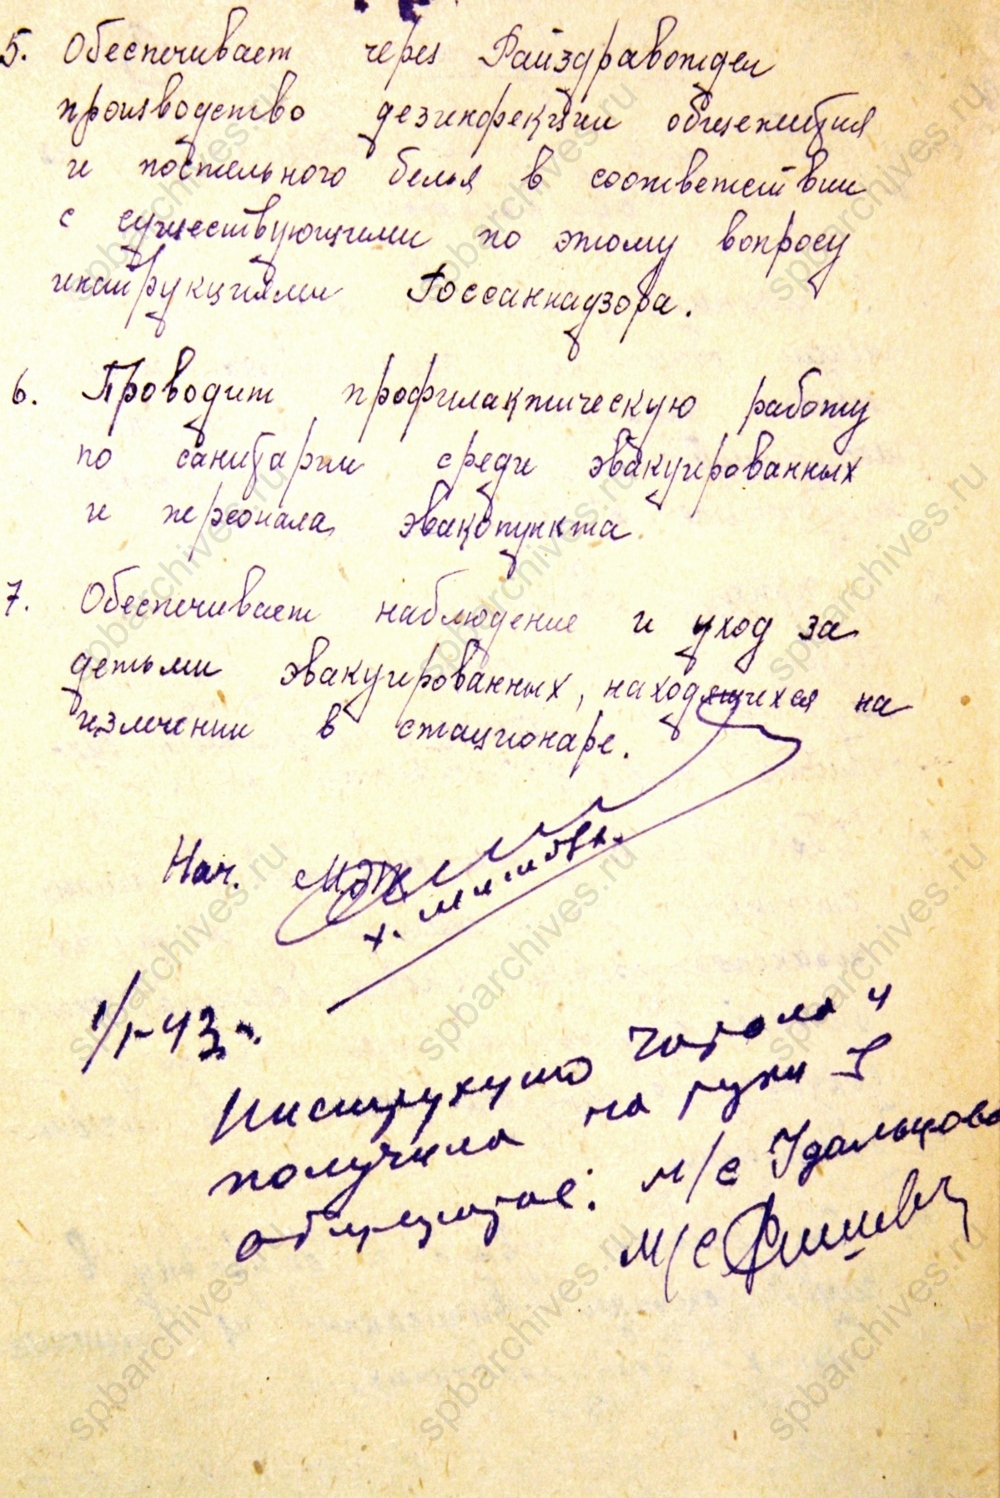 5. Обеспечивает через Райздравотдел
производство дезинфекции общежития
и постельного белья в соответствии
с существующими по этому вопросу
инструкциями Госсаннадзора.
6. Проводит профилактическую работу
по санитарии среди эвакуированных
и персонала эвакопункта
7. Обеспечивает наблюдение и уход за
детьми эвакуированных, находящихся на
излечении в стационаре.
Нач.
1/I-43 г.
Инструкцию читала и
получила на руки I
м/с Удальцова
м/с
spbarchives.ru